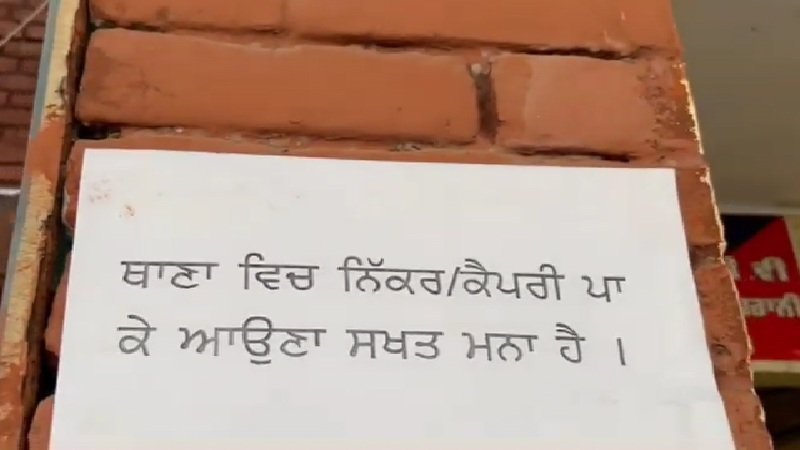 ਥਾਣਾ ਵਿਚ ਨਿੱਕਰ/ਕੈਪਰੀ ਪਾ
ਕੇ ਆਉਣਾ ਸਖਤ ਮਨਾ ਹੈ ।
ਵੀ